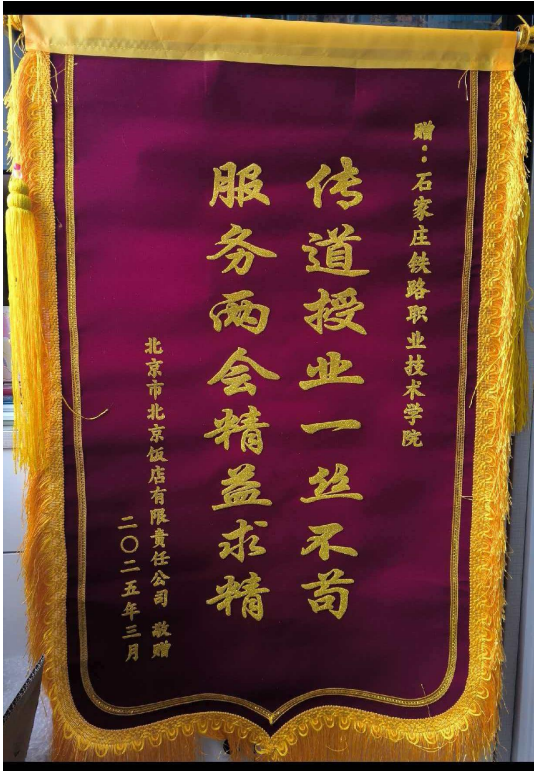 赠：石家庄铁路职业技术学院
传道授业一丝不苟
服务两会精益求精
北京市北京饭店有限责任公司 敬赠
二〇二五年三月